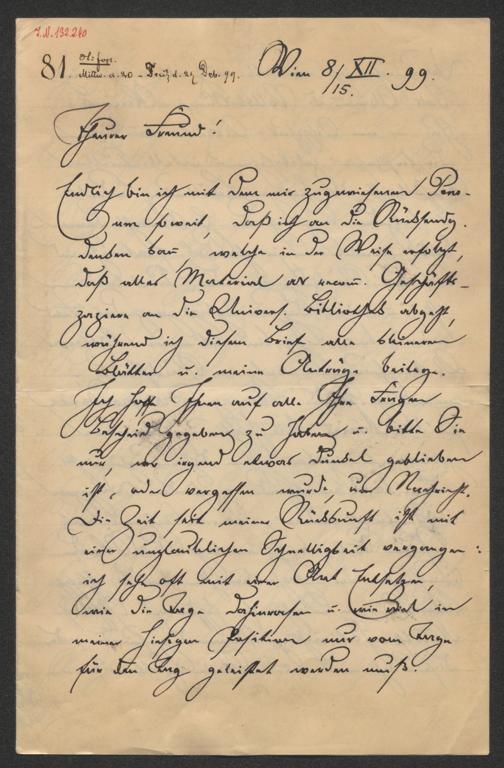 I.N. 132.240
81.
Wien 8/XII. 99.
15.
Theurer Freund!
Endlich bin ich mit dem mir zugewiesenen Pen-
sum soweit, daß ich an die Rücksendg.
denken kann, welche in der Weise erfolgt,
daß alles Material als recom. Geschäfts-
papiere an die Univers. Bibliothek abgeht,
während ich diesem Brief alle kleineren
Blätter u. meine Anträge beilege.
Ich hoffe Ihnen auf alle Ihre Fragen
Bescheid gegeben zu haben u. bitte Sie
nur, wo irgend etwas dunkel geblieben
ist, oder vergessen wurde, um Nachricht.
Die Zeit seit meiner Rückkunft ist mit
einer unglaublichen Schnelligkeit vergangen:
ich sehe oft mit einer Art Entsetzen,
wie die Tage dahinrasen u. wie viel in
meiner hiesigen Position nur vom Tage
für den Tag geleistet werden muß.